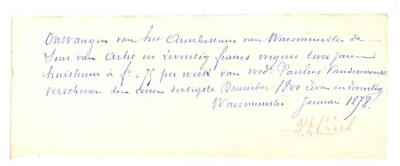 Ontvangen van het Armbestuur van Waesmunster de
Som van Acht en Zeventig francs wegens twee jaren
huishuur à fr. „ 75 per week van wed. Paulus Vandermeersch
verschenen den eenen dertigste December 1800 zeven en zeventig
Waesmunster Januari 1878.